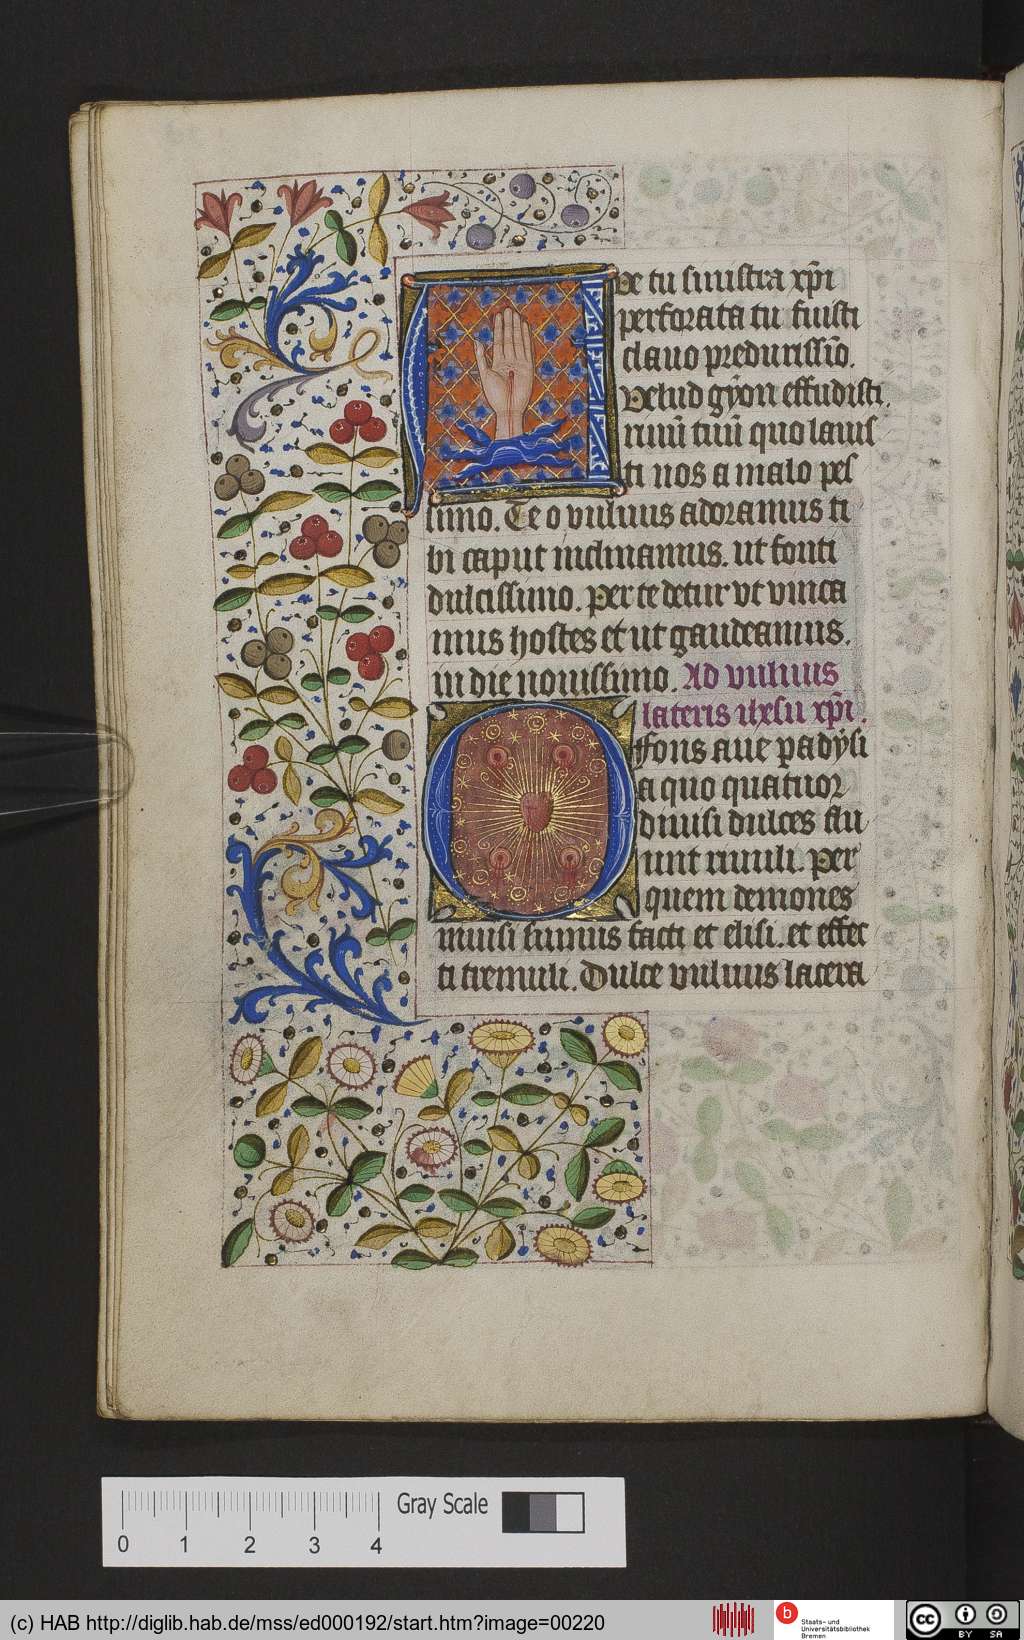 Ave tu sinistra xp̄i
perforata tu fuisti
clauo predurissīo.
velud gẏon effudisti.
riuū tuū quo lauis
ti nos a malo pes
simo. Te o vulnus adoramus ti
bi caput inclinamus. ut fonti
dulcissimo. per te detur vt vinca
mus hostes et ut gaudeamus.
in die nouissimo. Ad vulnus
lateris ihesu xp̄i.
O fons aue padẏsi
a quo quatuor
diuisi dulces flu
unt riuuli. per
quem demones
inuisi sumus facti et elisi. et effec
ti tremuli. Dulce vulnus lacera
0 1 2 3 4 Gray Scale
(c) HAB http://diglib.hab.de/mss/ed000192/start.htm?image=00220
b Staats- und
Universitätsbibliothek
Bremen
cc BY SA